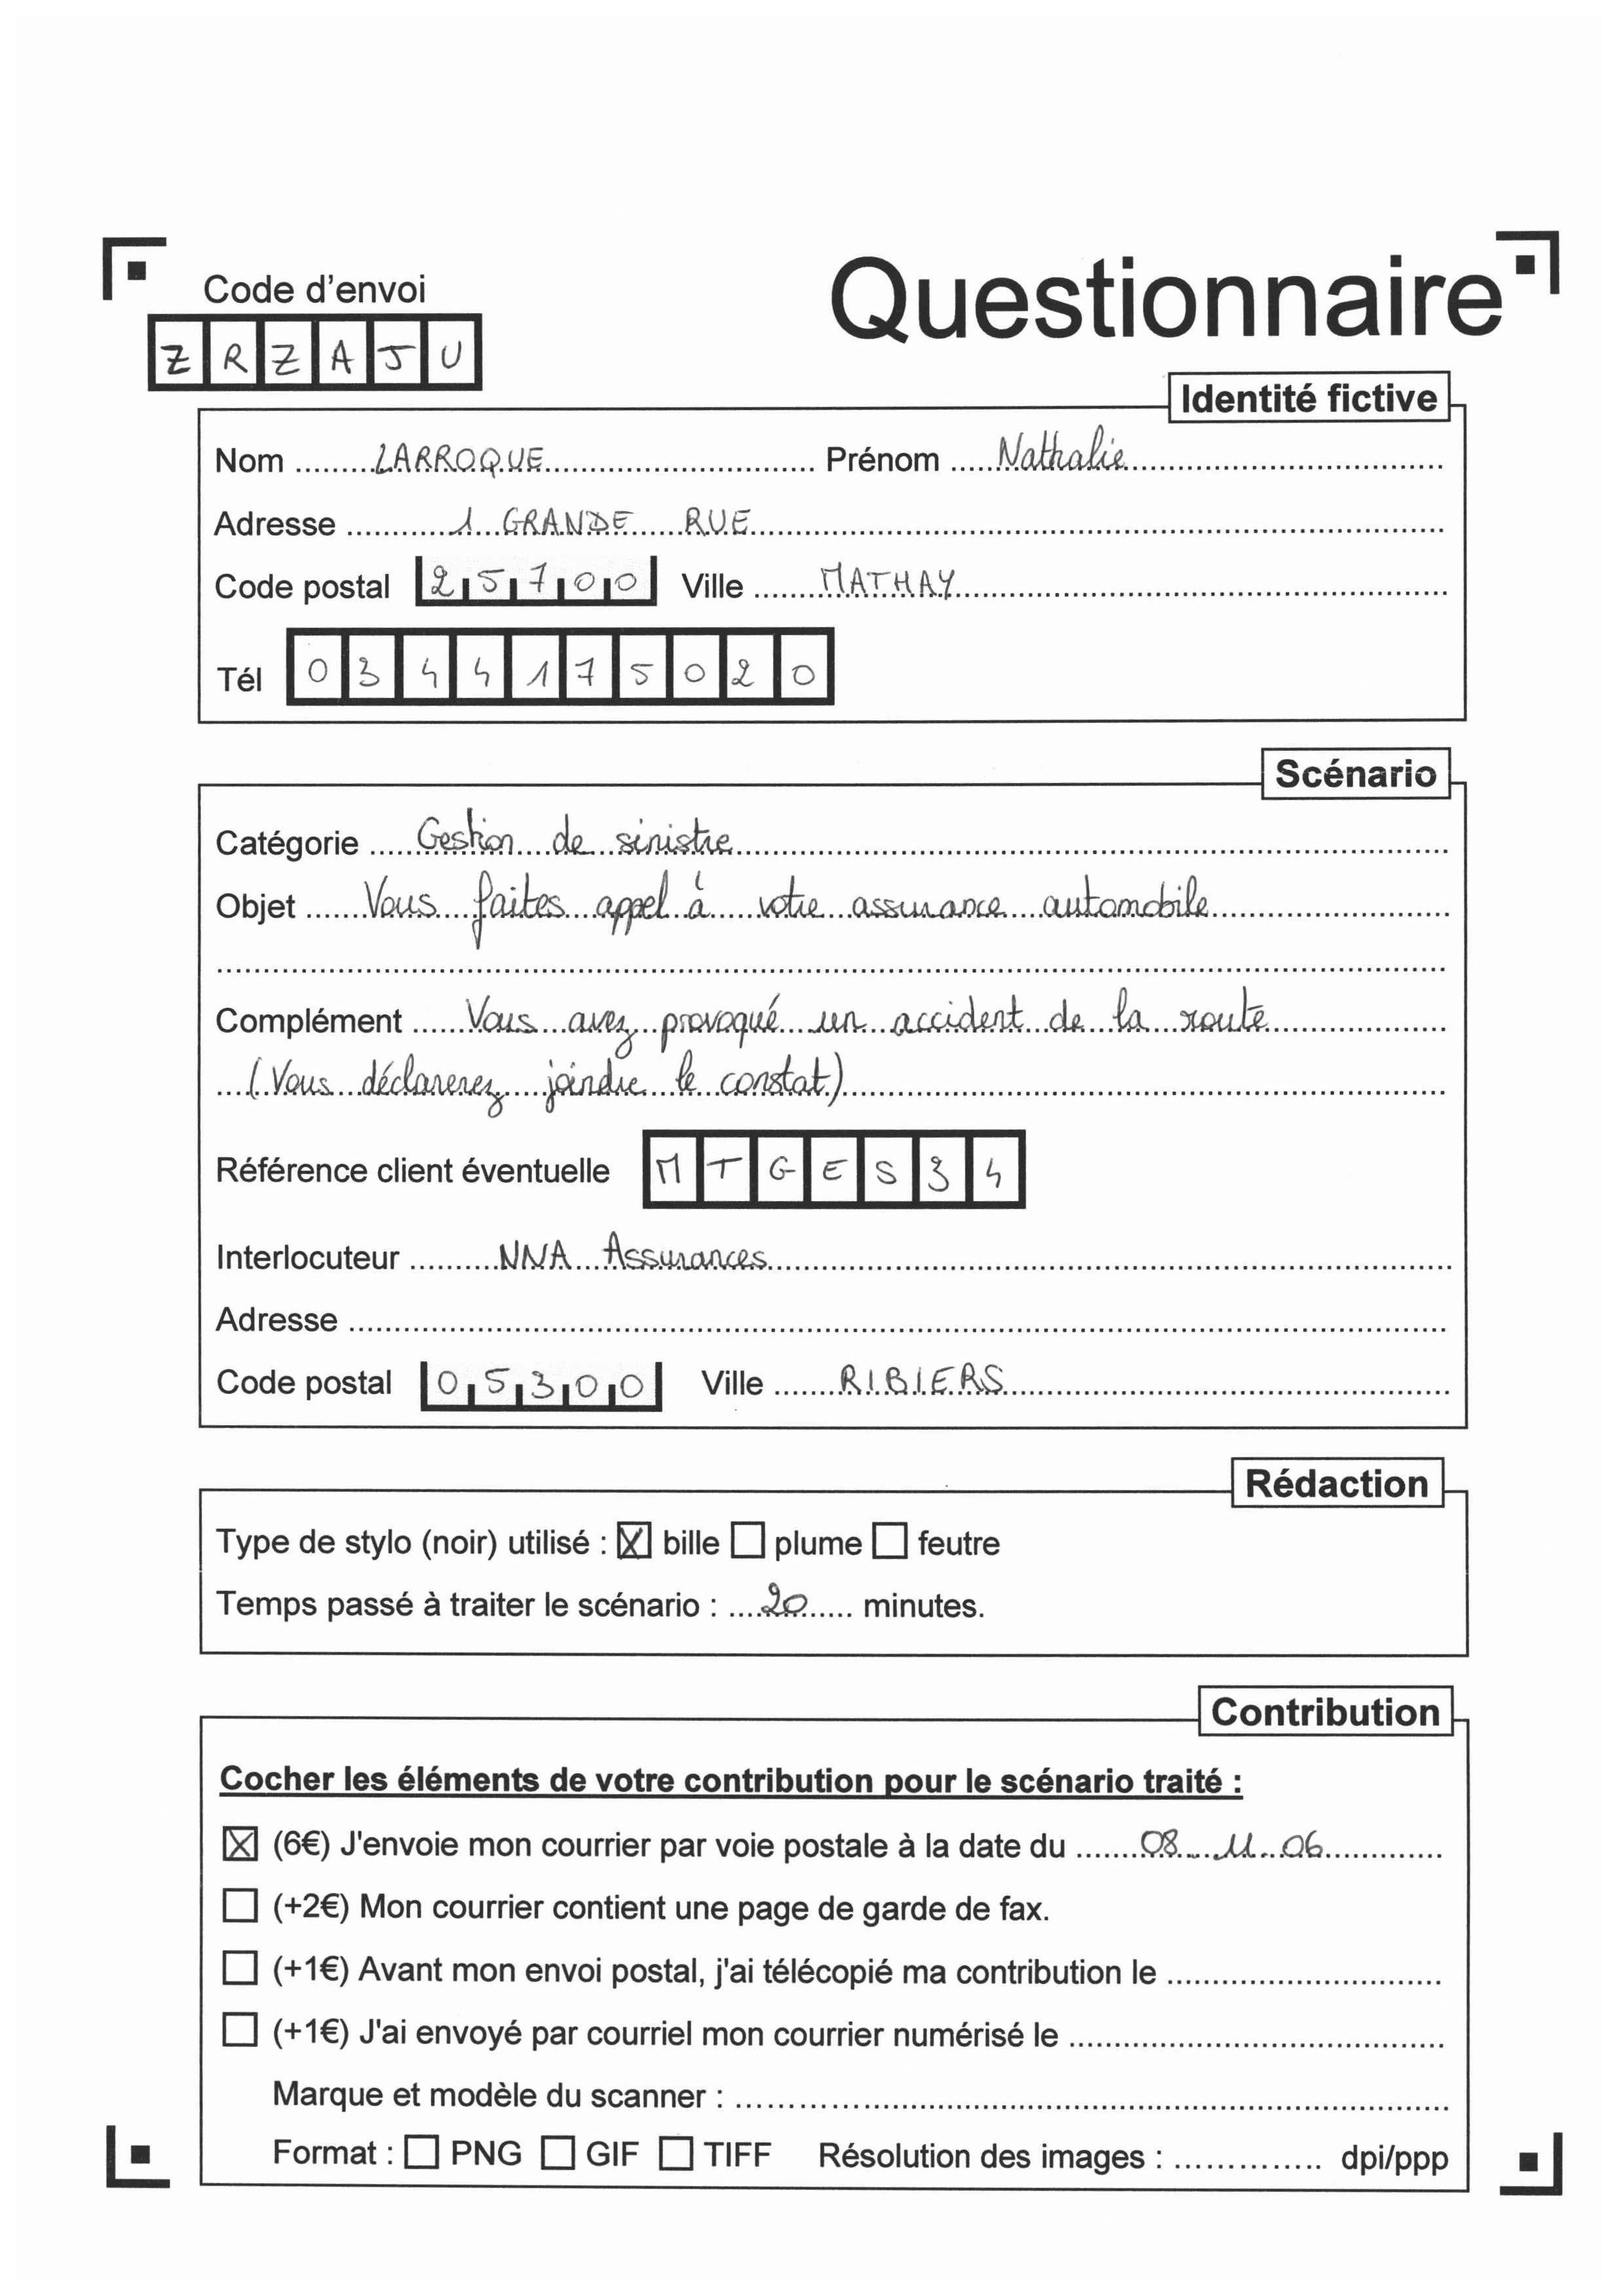 Code d'envoi
Questionnaire
ZRZAJU
Identité fictive
Nom LARROQUE Prénom Nathalie
Adresse 1 GRANDE RUE
Code postal 25700 Ville MATHAY
Tél 0344175020
Scénario
Catégorie Gestion de sinistre
Objet Vous faites appel à votre assurance automobile
Complément Vous avez provoqué un accident de la route
(Vous déclarerez joindre le constat)
Référence client éventuelle MTGES34
Interlocuteur NNA Assurances
Adresse
Code postal 05300 Ville RIBIERS
Rédaction
Type de stylo (noir) utilisé : ☒ bille ☐ plume ☐ feutre
Temps passé à traiter le scénario : 20 minutes.
Contribution
Cocher les éléments de votre contribution pour le scénario traité :
☒ (6€) J'envoie mon courrier par voie postale à la date du 08.11.06
☐ (+2€) Mon courrier contient une page de garde de fax.
☐ (+1€) Avant mon envoi postal, j'ai télécopié ma contribution le
☐ (+1€) J'ai envoyé par courriel mon courrier numérisé le
Marque et modèle du scanner :
Format : ☐ PNG ☐ GIF ☐ TIFF Résolution des images : dpi/ppp